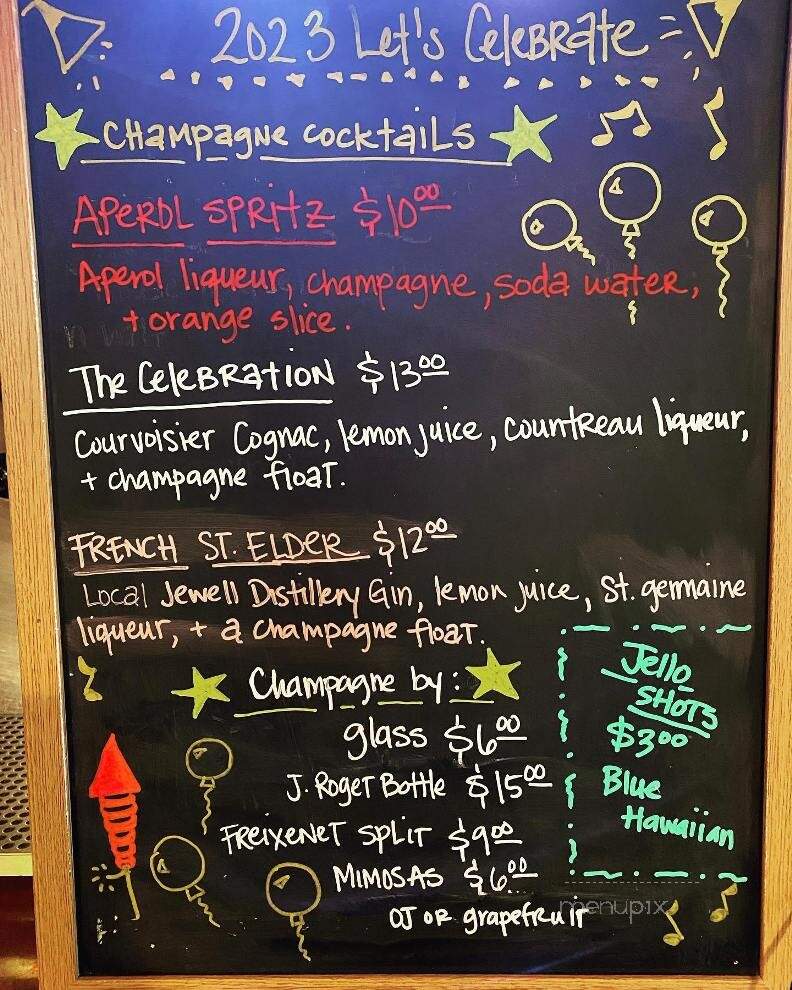 2023 Let's Celebrate
Champagne Cocktails
Aperol Spritz $10.00
Aperol liqueur, champagne, soda water,
+ orange slice.
The Celebration $13.00
Courvoisier Cognac, lemon juice, countreau liqueur,
+ champagne float.
French St. Elder $12.00
Local Jewell Distillery Gin, lemon juice, St. germaine
liqueur, + a champagne float.
Champagne by:
glass $6.00
J. Roget Bottle $15.00
Freixenet split $9.00
Mimosas $6.00
OJ or grapefruit
Jello
Shots
$3.00
Blue
Hawaiian
menupix